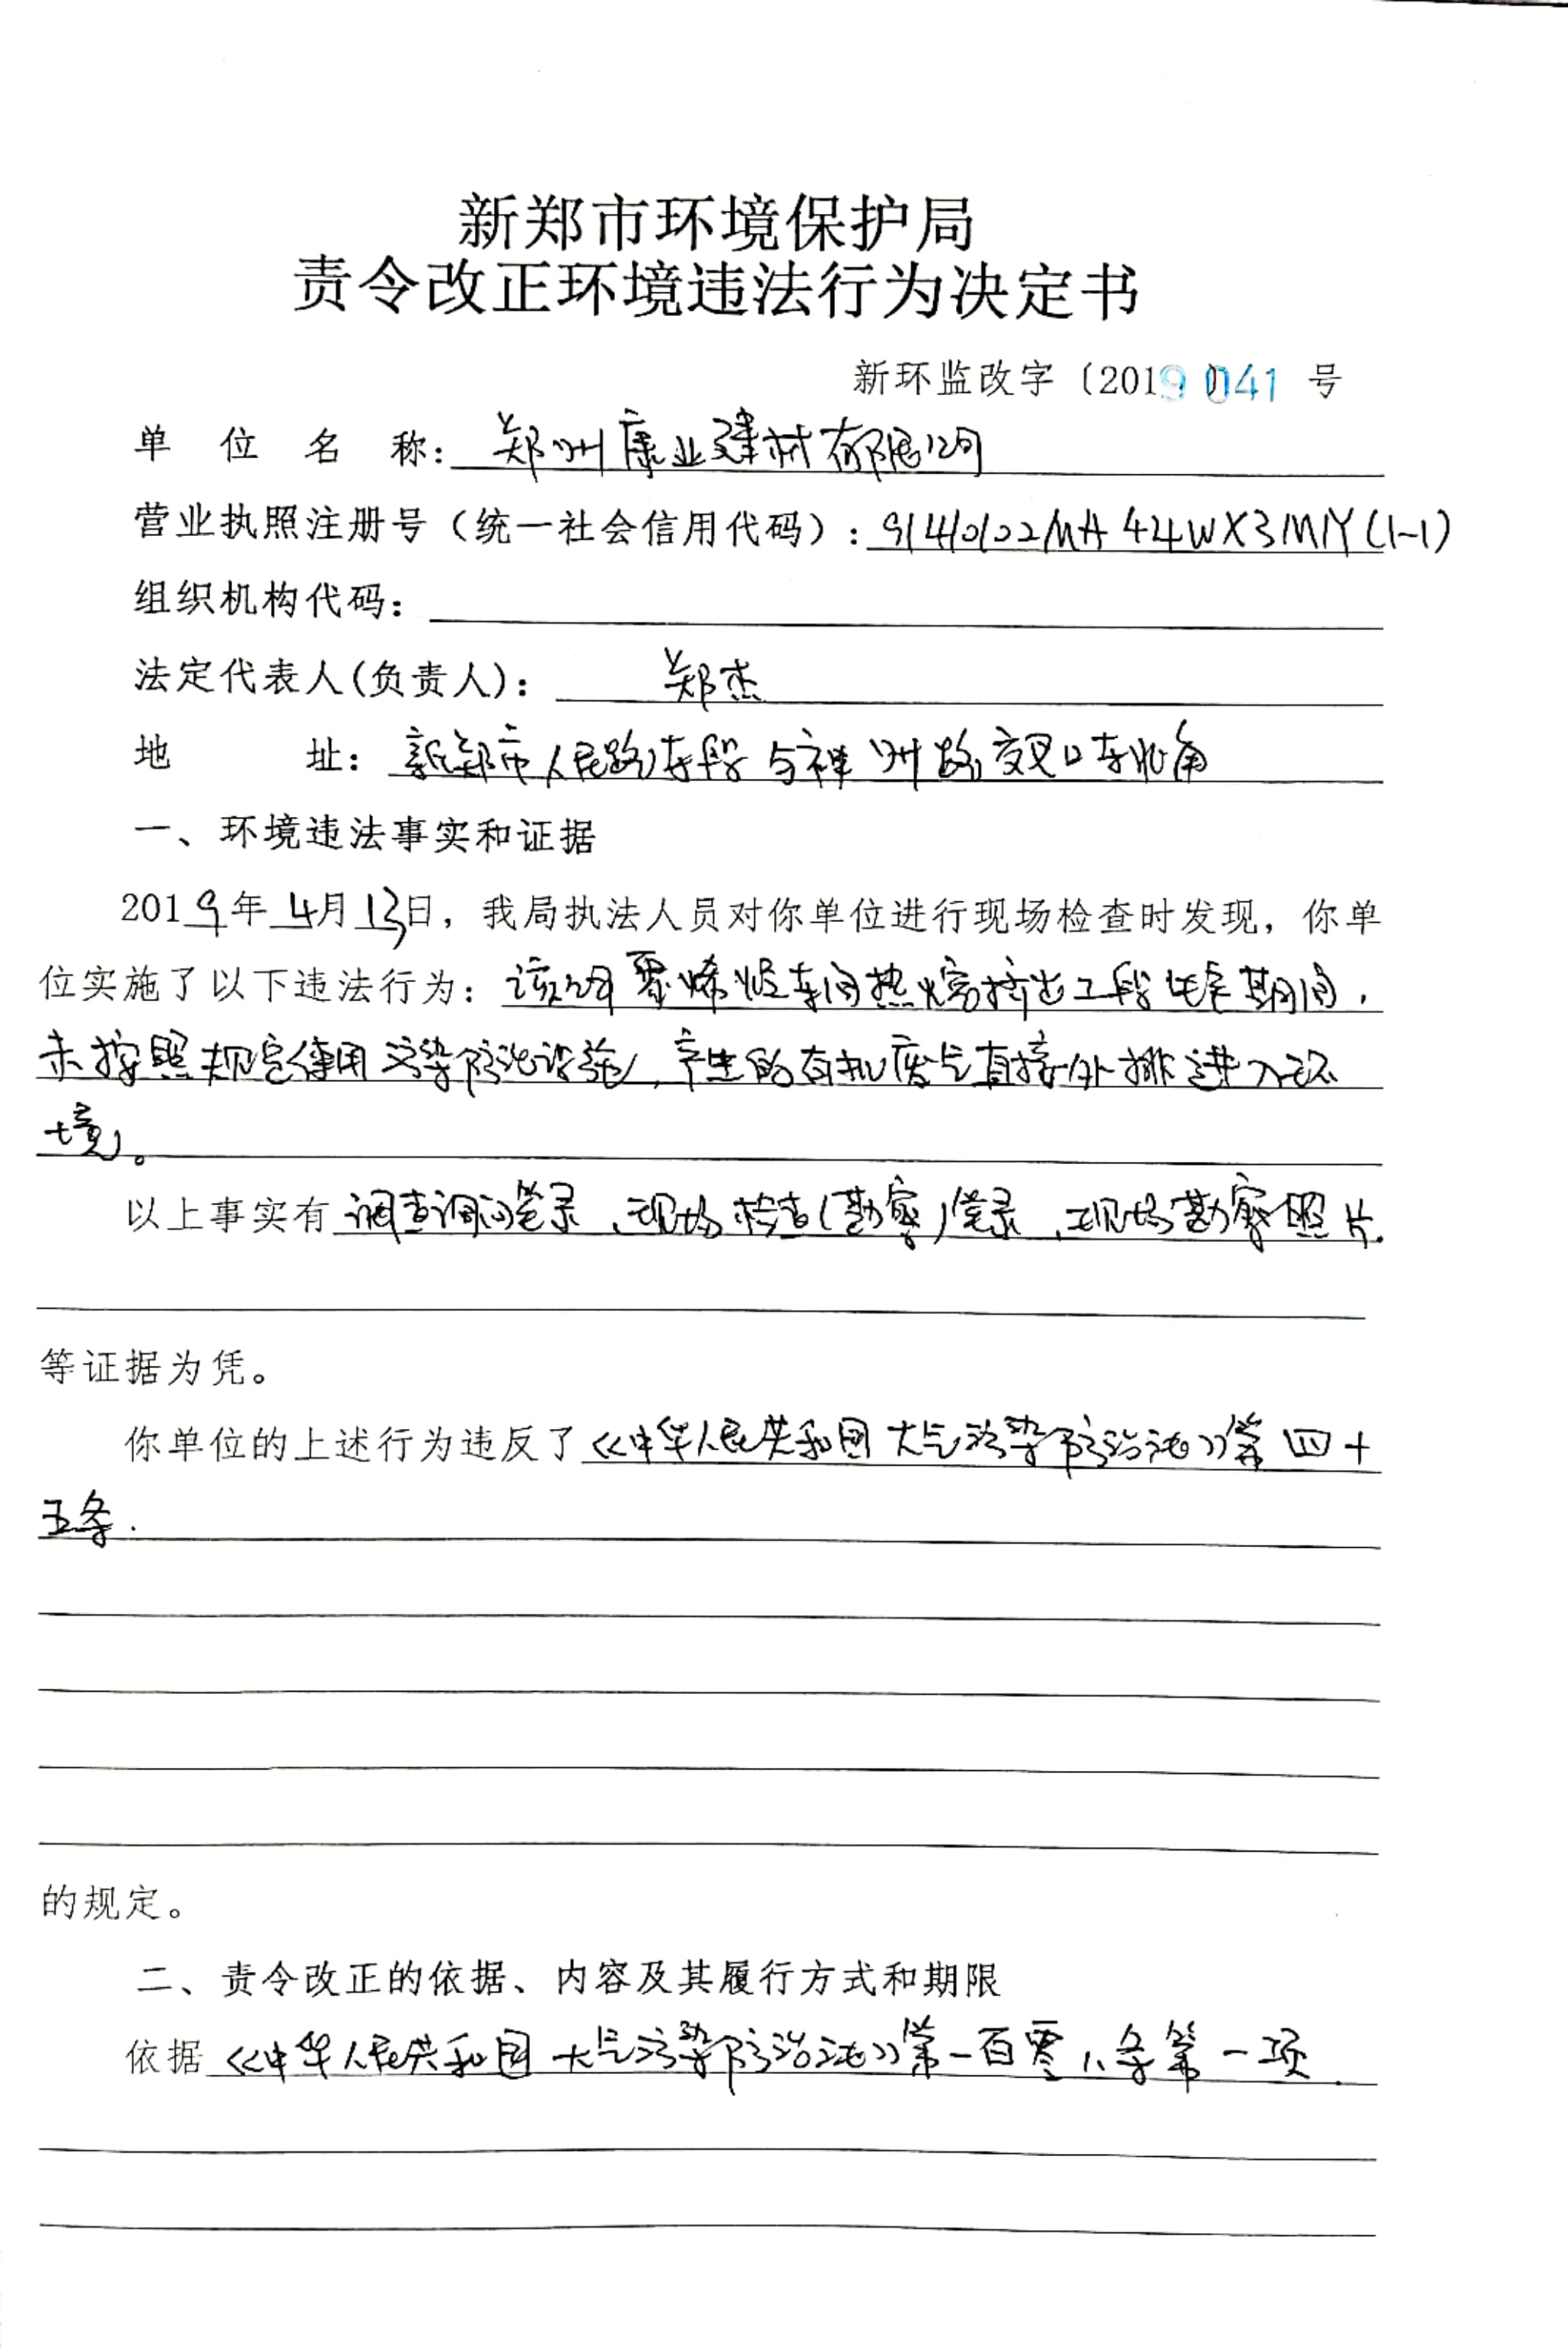 新郑市环境保护局
责令改正环境违法行为决定书
新环监改字〔2019〕041 号
单 位 名 称：郑州康业建材有限公司
营业执照注册号（统一社会信用代码）：9140122MA44WX3M1Y(1-1)
组织机构代码：
法定代表人(负责人)：郑杰
地 址：新郑市人民路东段与神州路交叉口东北角
一、环境违法事实和证据
2019年4月13日，我局执法人员对你单位进行现场检查时发现，你单
位实施了以下违法行为：该公司聚烯烃车间热熔挤出工段生产期间，
未按照规定使用污染防治设施，产生的有机废气直接外排进入环
境。
以上事实有调查询问笔录、现场检查(勘察)笔录、现场勘察照片.
等证据为凭。
你单位的上述行为违反了《中华人民共和国大气污染防治法》第四十
五条.
的规定。
二、责令改正的依据、内容及其履行方式和期限
依据《中华人民共和国大气污染防治法》第一百零八条第一项.